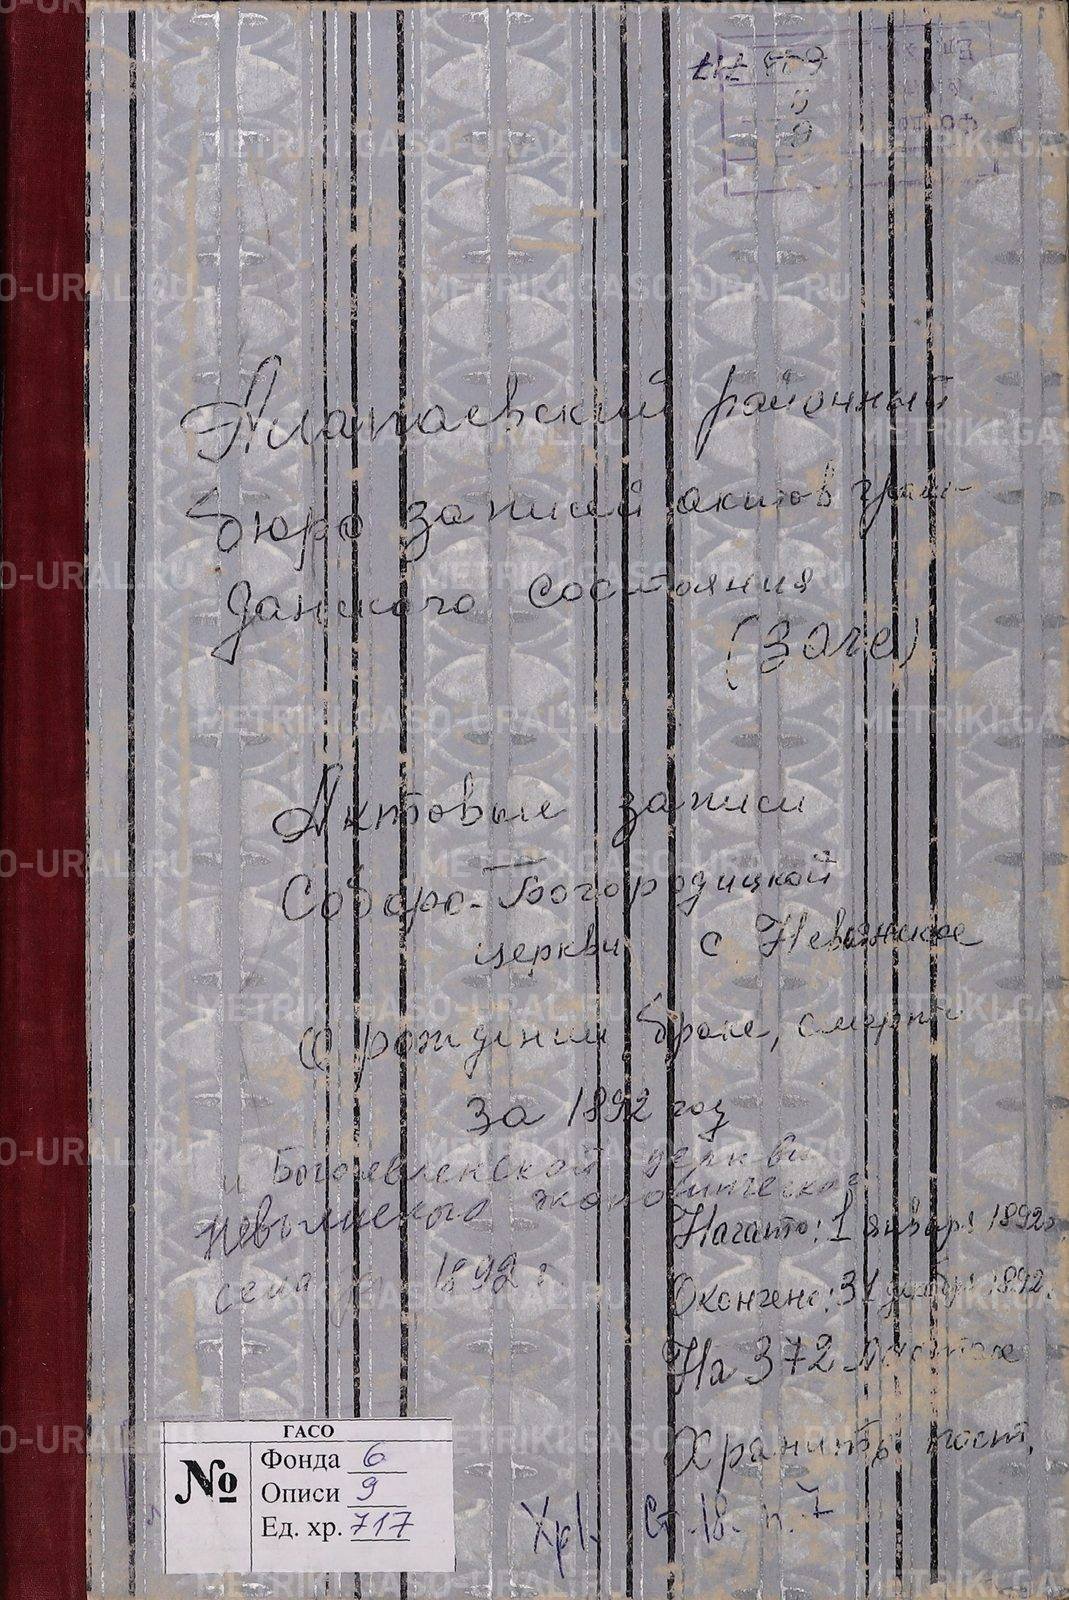 717
6
9
Алапаевский районный
бюро записей актов граж-
данского состояния
(загс)
Актовые записи
Соборо-Богородицкой
церкви с Невьянское
О рождении браке, смерти
за 1892 год
и Богоявленской церкви
Невьянского экономического
села за 1892 г.
Начато: 1 января 1892г.
Окончено: 31 декабря 1892.
На 372 листах
Хранить пост.
Хр. Ст. 18. п. 7
ГАСО
№
Фонда 6
Описи 9
Ед. хр. 717
METRIKI.GASO-URAL.RU